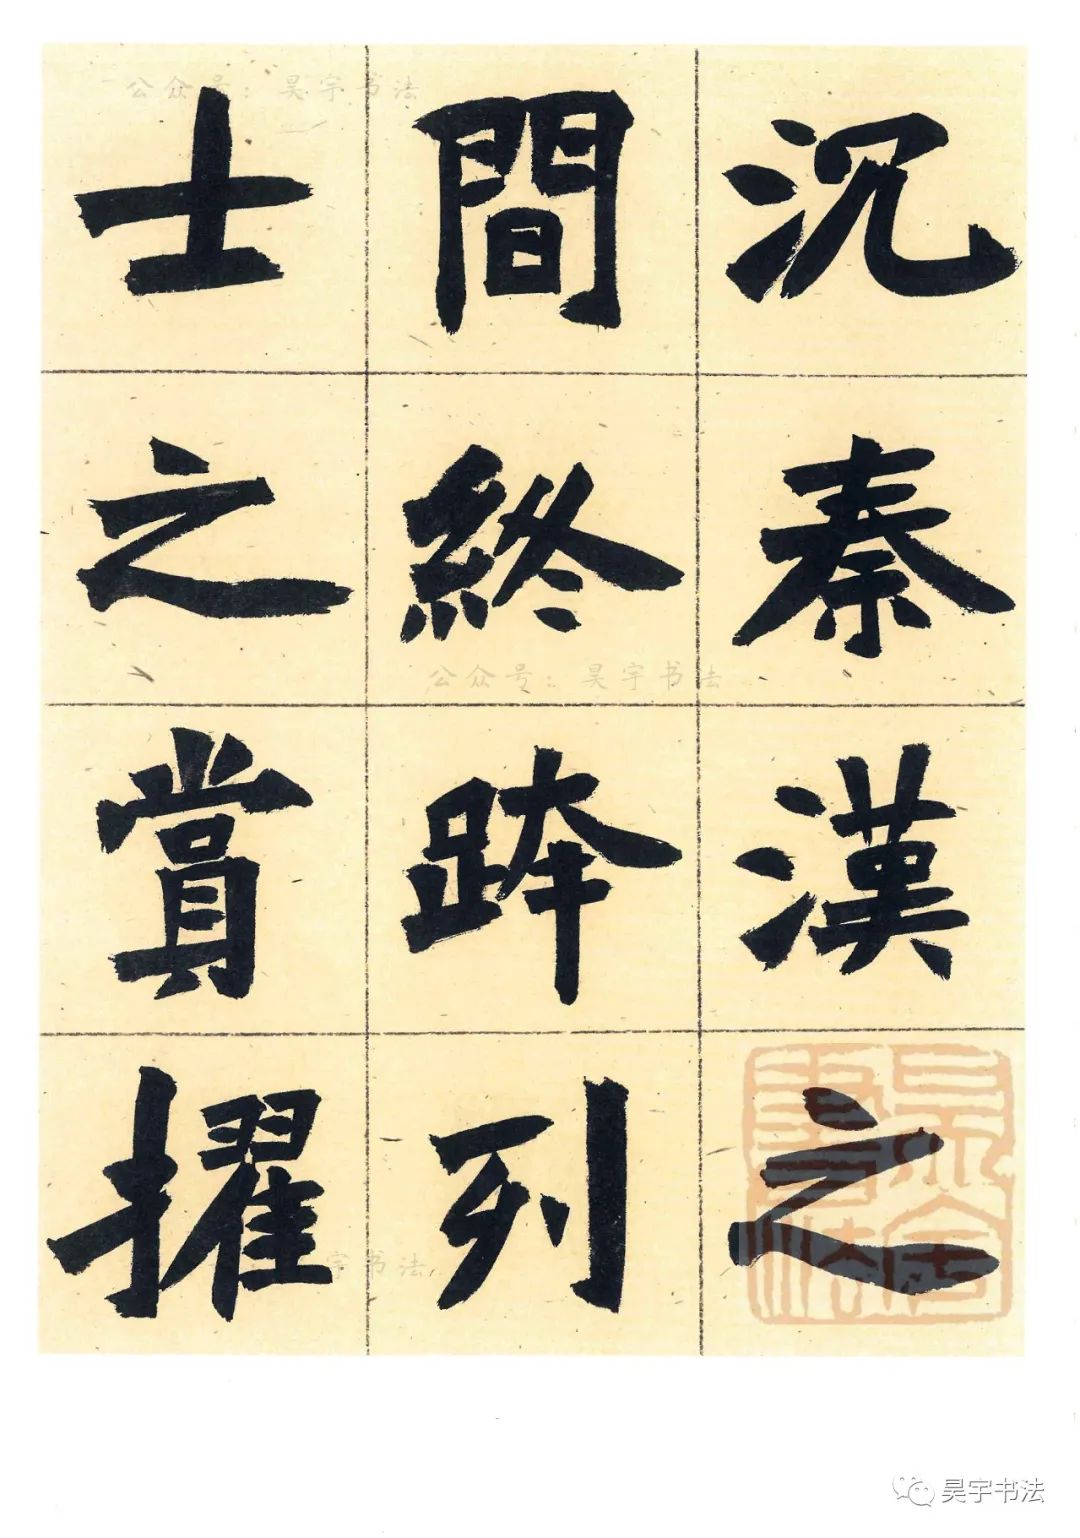 沉秦漢之
間終跨列
士之賞擢
公众号：昊宇书法
公众号：昊宇书法
宇书法
昊宇書法
昊宇书法